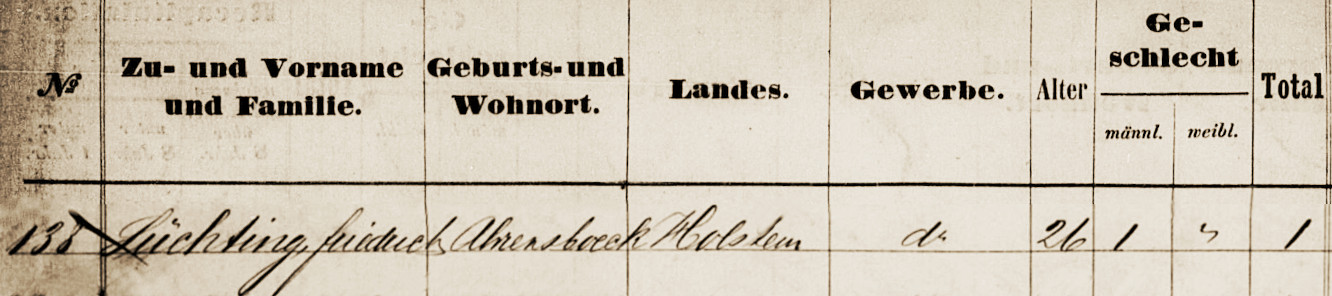 № Zu- und Vorname und Familie. Geburts- und Wohnort. Landes. Gewerbe. Alter Ge-schlecht männl. weibl. Total
138 Lüchting, friedrich Ahrensboeck Holstein do 26 1 " 1